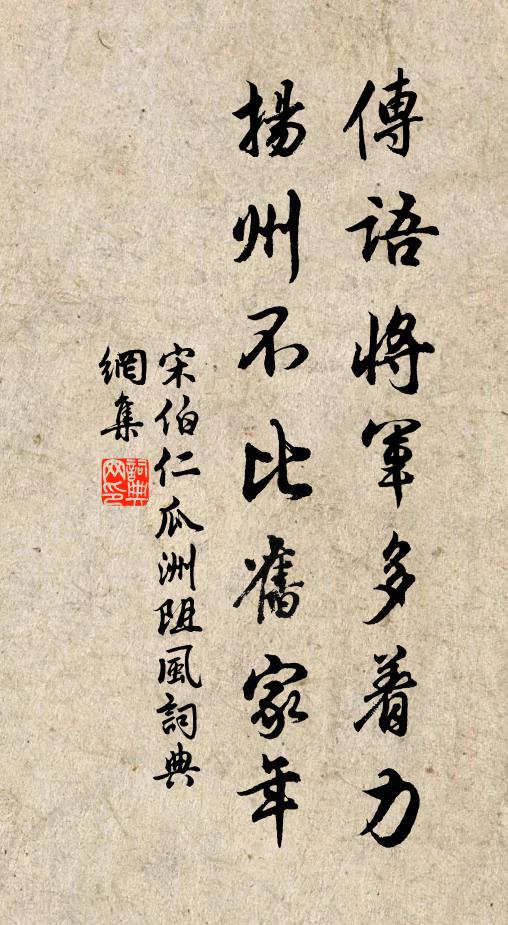 傳語將軍多着力
揚州不比舊家年
宋伯仁瓜洲阻風詞典
網集
詞典網印